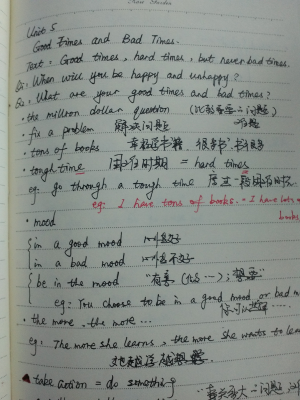 Unit 5
Good Times and Bad Times.
Text: Good times, hard times, but never bad times.
Q1: When will you be happy and unhappy?
Q2: What are your good times and bad times?
· the million dollar question (比较重要的问题)
· fix a problem 解决问题
· tons of books 很多书
· tough time 困难时期 = hard times
eg: go through a tough time 度过一段
eg: I have tons of books. = I have lots of
books.
· mood
in a good mood 心情好
in a bad mood 心情不好
be in the mood "有意(做…);想要"
eg: You choose to be in a good mood or bad m
你可以选择
· the more, the more ...
eg: The more she learns, the more she wants to lea
她越学越想学.
· take action = do something